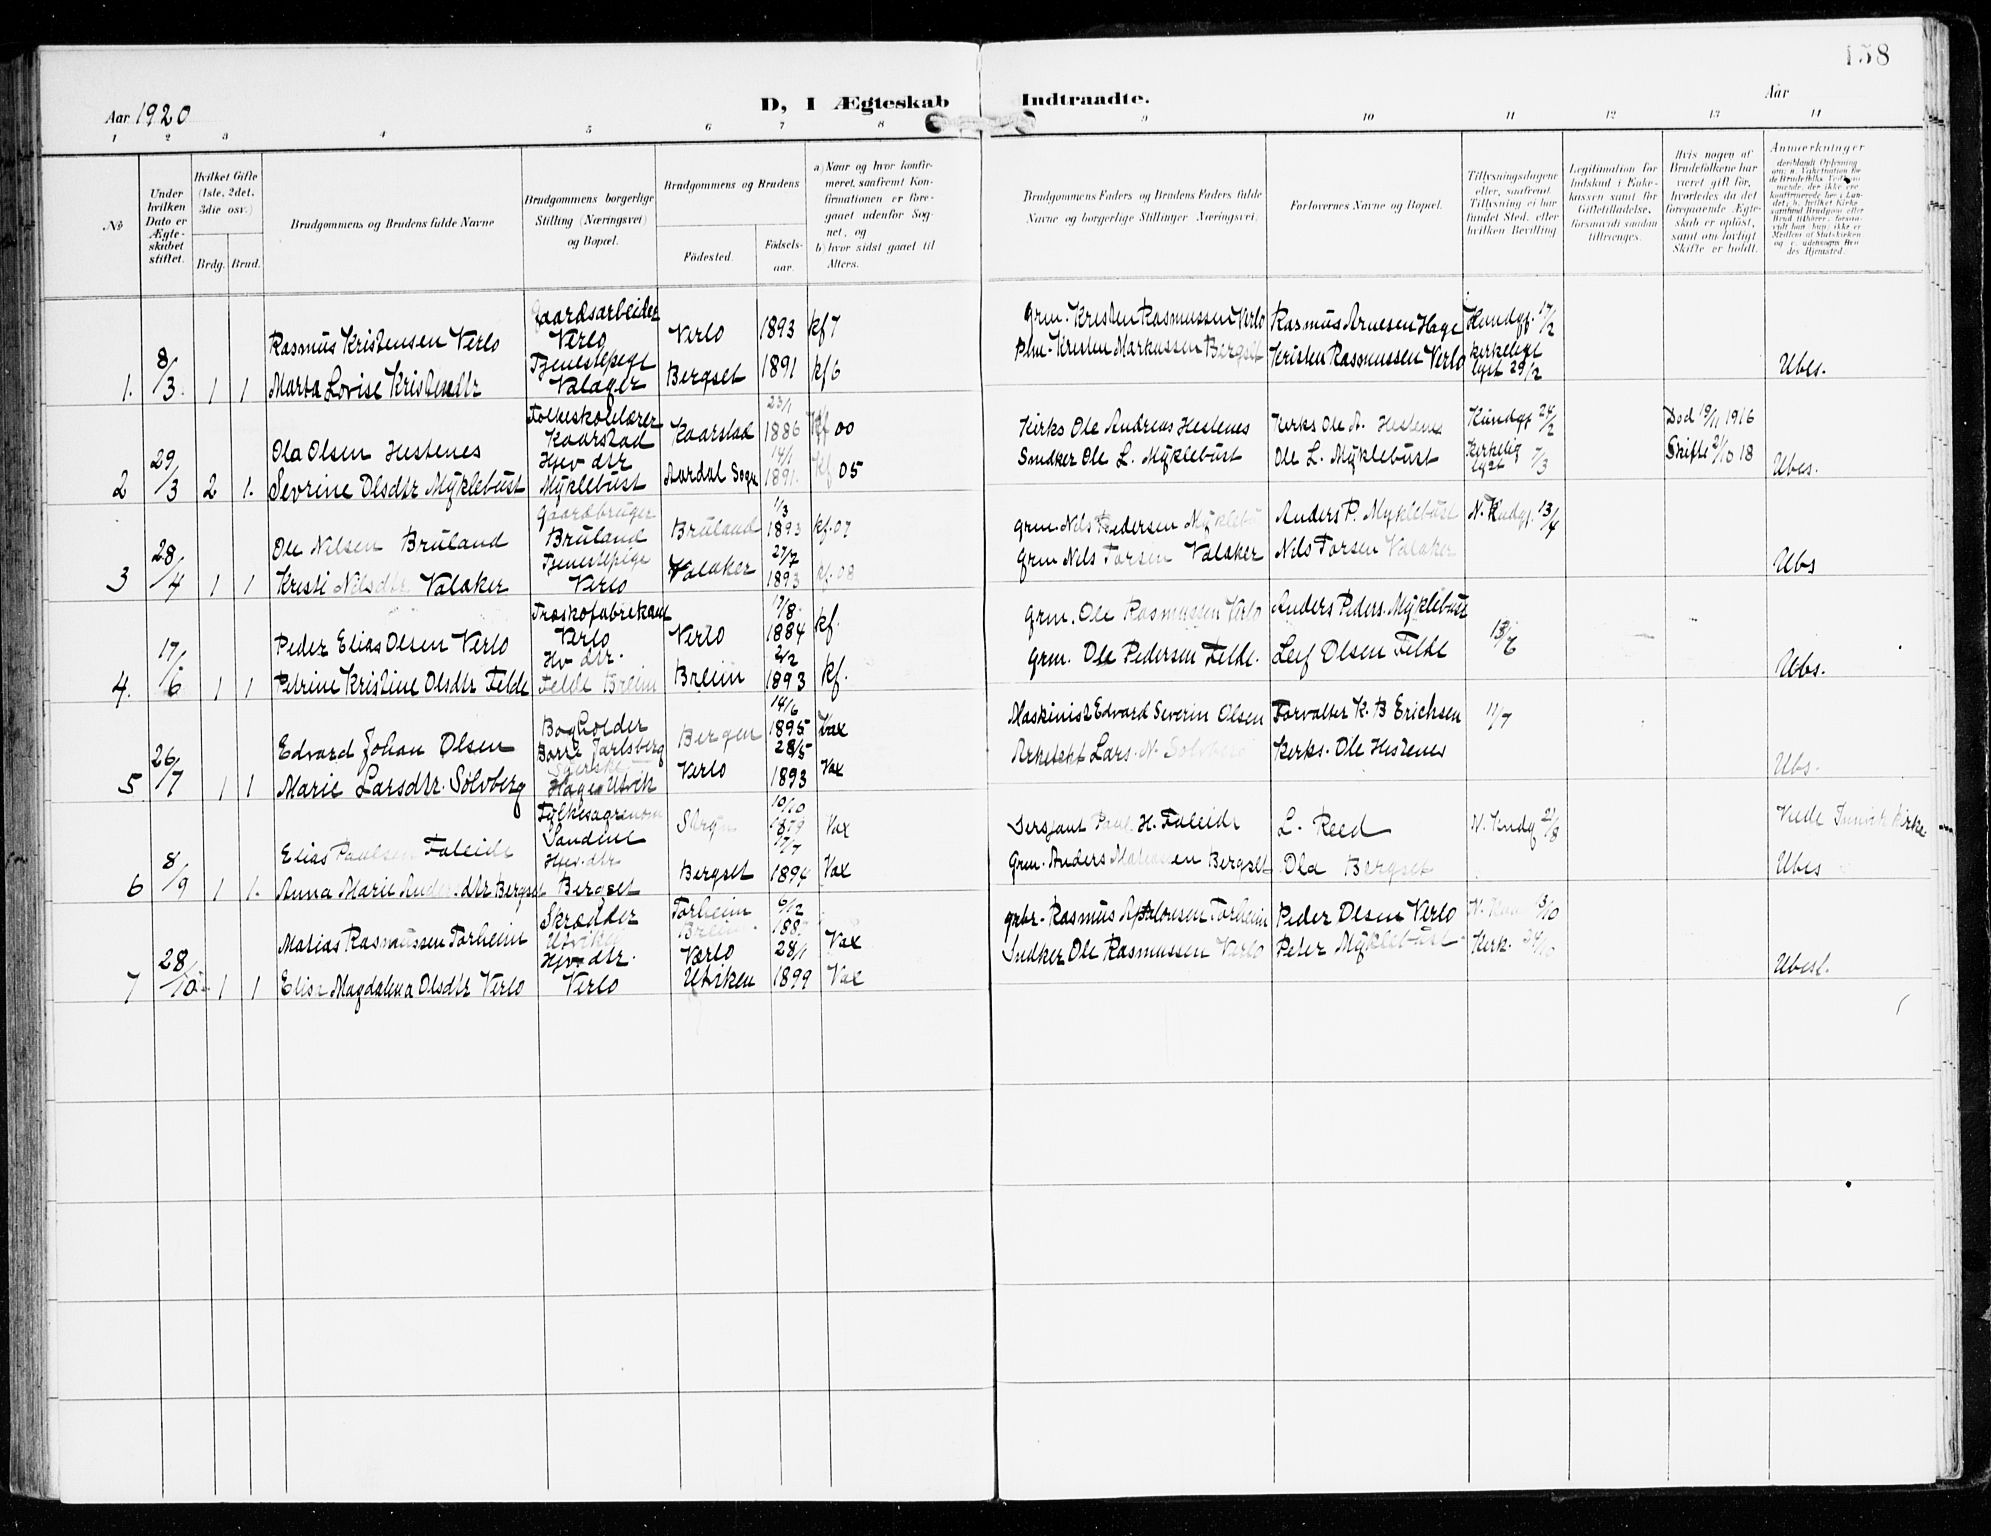 158
Aar 1920
D, I Ægteskab Indtraadte.
Aar
1 2 3 4 5 6 7 8 9 10 11 12 13 14
No
Under hvilken Dato er Ægteskabet stiftet.
Hvilket Gifte (1ste, 2det, 3die osv.)
Brdg. Brud.
Brudgommens og Brudens fulde Navne
Brudgommens borgerlige Stilling (Næringsvei) og Bopæl.
Brudgommens og Brudens
Fødested. Fødselsaar.
a) Naar og hvor konfirmeret, saafremt Konfirmationen er foregaaet udenfor Sognet, og
b) hvor sidst gaaet til Alters.
Brudgommens Faders og Brudens Faders fulde Navne og borgerlige Stillinger Næringsvei.
Forlovernes Navne og Bopæl.
Tillysningsdagene eller, saafremt Tillysning ei har fundet Sted, efter hvilken Bevilling
Legitimation for Indskud i Enkekassen samt for Giftetilladelse, forsaavidt saadan tiltrænges.
Hvis nogen af Brudefolkene har været gift før, hvorledes da det foregaaende Ægteskab er opløst, samt om lovligt Skifte er holdt.
Anmerkninger
1. 8/3. 1 1
Rasmus Kristensen Verlo Gaardsarbeider Verlo Verlo 1893 kf 7 Grm. Kristen Rasmussen Verlo Rasmus Arnesen Hage Kundgj. 17/2
Marta Lovise Kristensdtr Tjenestepige Valager Bergset 1891 kf 6 Plm. Kristen Markussen Bergset Kristen Rasmussen Verlo kirkeligt lyst 29/2 Ubes.
2 29/3 2 1.
Ola Olsen Hestenes Folkeskolelærer Kaarstad Kaarstad 23/1 1886 Kf 00 Kirks Ole Andreas Hestenes Kirks Ole A. Hestenes Kundgj 24/2 Død 19/11 1916
Sevrine Olsdtr Myklebust Hjv dtr Myklebust Aardal Sogn 14/1 1891. Kf 05 Smdker Ole L. Myklebust Ole L. Myklebust Kirkelig lyst 7/3 Skifte 2/10 18 Ubes.
3 28/4 1 1
Ole Nilsen Bruland Gaardbruger Bruland Bruland 1/3 1893 kf. 07 Grm Nils Pedersen Anders P. Myklebust N. Kndgj. 13/4
Kristi Nilsdtr Valaker Tjenestepige Verlo Valaker 27/7 1893 kf. 08 Grm Nils Torsen Valaker Nils Torsen Valaker Ubs
4. 17/6 1 1
Peder Elias Olsen Verlo Træskofabrikant Verlo Verlo 19/8 1884 kf. Grm. Ole Rasmussen Verlo Anders Peders. Myklebust 13/6
Petrine Kristine Olsdtr Felde Hv dtr. Felde Breim Breim 2/2 1893 kf. Grm. Ole Pedersen Felde. Leif Olsen Felde Ubs.
5 26/7 1 1
Edvard Johan Olsen Bogholder Borre Jarlsberg Bergen 14/6 1895 Vax Maskinist Edvard Severin Olsen Forvalter K. B Erichsen 11/7
Marie Larsdtr. Solvberg Hage Utvik Verlo 28/5 1893 Vax Arkitekt Lars. N. Solvberg Kerks. Ole Hestenes Ubs.
6 8/9 1 1.
Elias Paulsen Faleide Fylkesagronom Sandene Stryn 10/10 Vax Sersjant Paul H. Faleide L. Reed N. Kndgj 21/8 Viede Innvik Kirke
Anna Marie Andersdtr Bergset Hjv. dtr Bergset Bergset 17/7 1894 Vax Grm. Anders Matiassen Bergset Ola Bergset Ubes
7 28/10 1 1
Matias Rasmussen Torheim Skrædder Utviken Torheim Breim 6/12 Vax grbr. Rasmus Apolonsen Torheim Peder Olsen Verlo N. 13/10
Elise Magdalena Olsdtr Verlo Hjv dtr. Verlo Verlo Utviken 28/1 1899 Vax Indker Ole Rasmussen Verlo Peter Myklebust Kerk. 24/10 Ubesl.